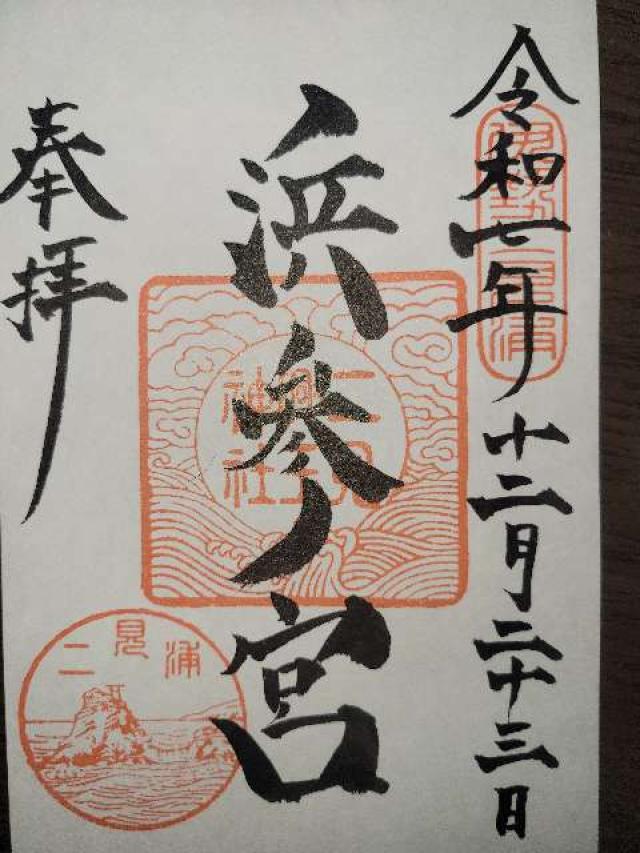 令和七年十二月二十三日
伊勢二見浦
浜参宮
二見興玉神社
奉拝
二見浦